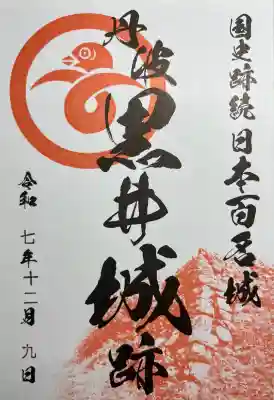 国史跡続日本百名城
丹波黒井城跡
令和七年十二月九日